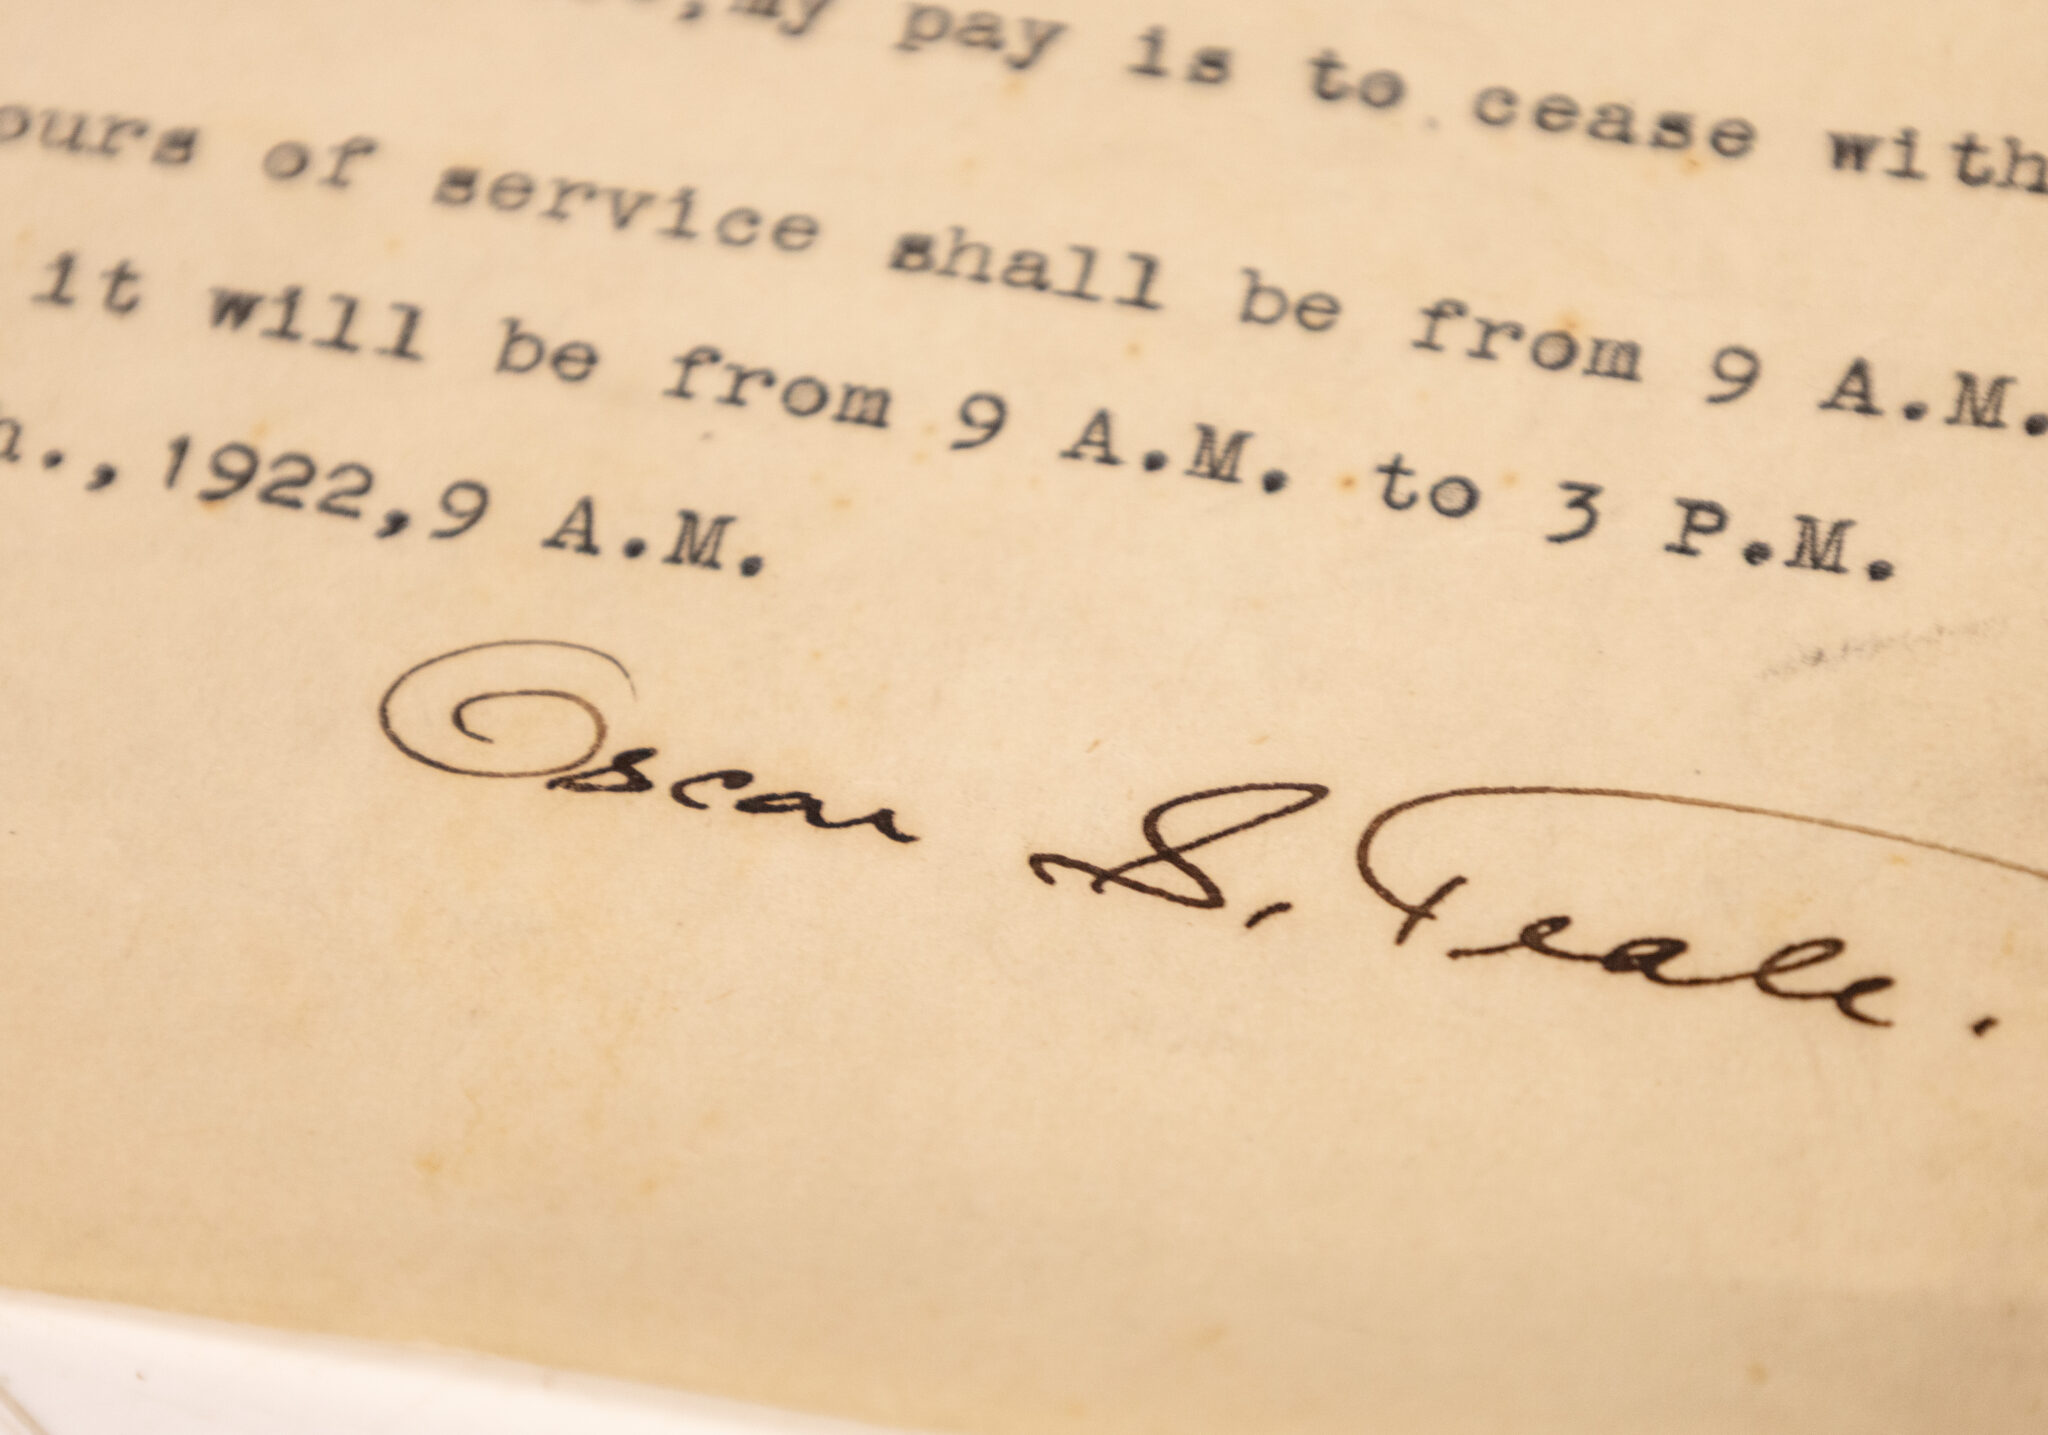 my pay is to cease with
ours of service shall be from 9 A.M.
it will be from 9 A.M. to 3 P.M.
h.,1922,9 A.M.
Oscar S. Teale.